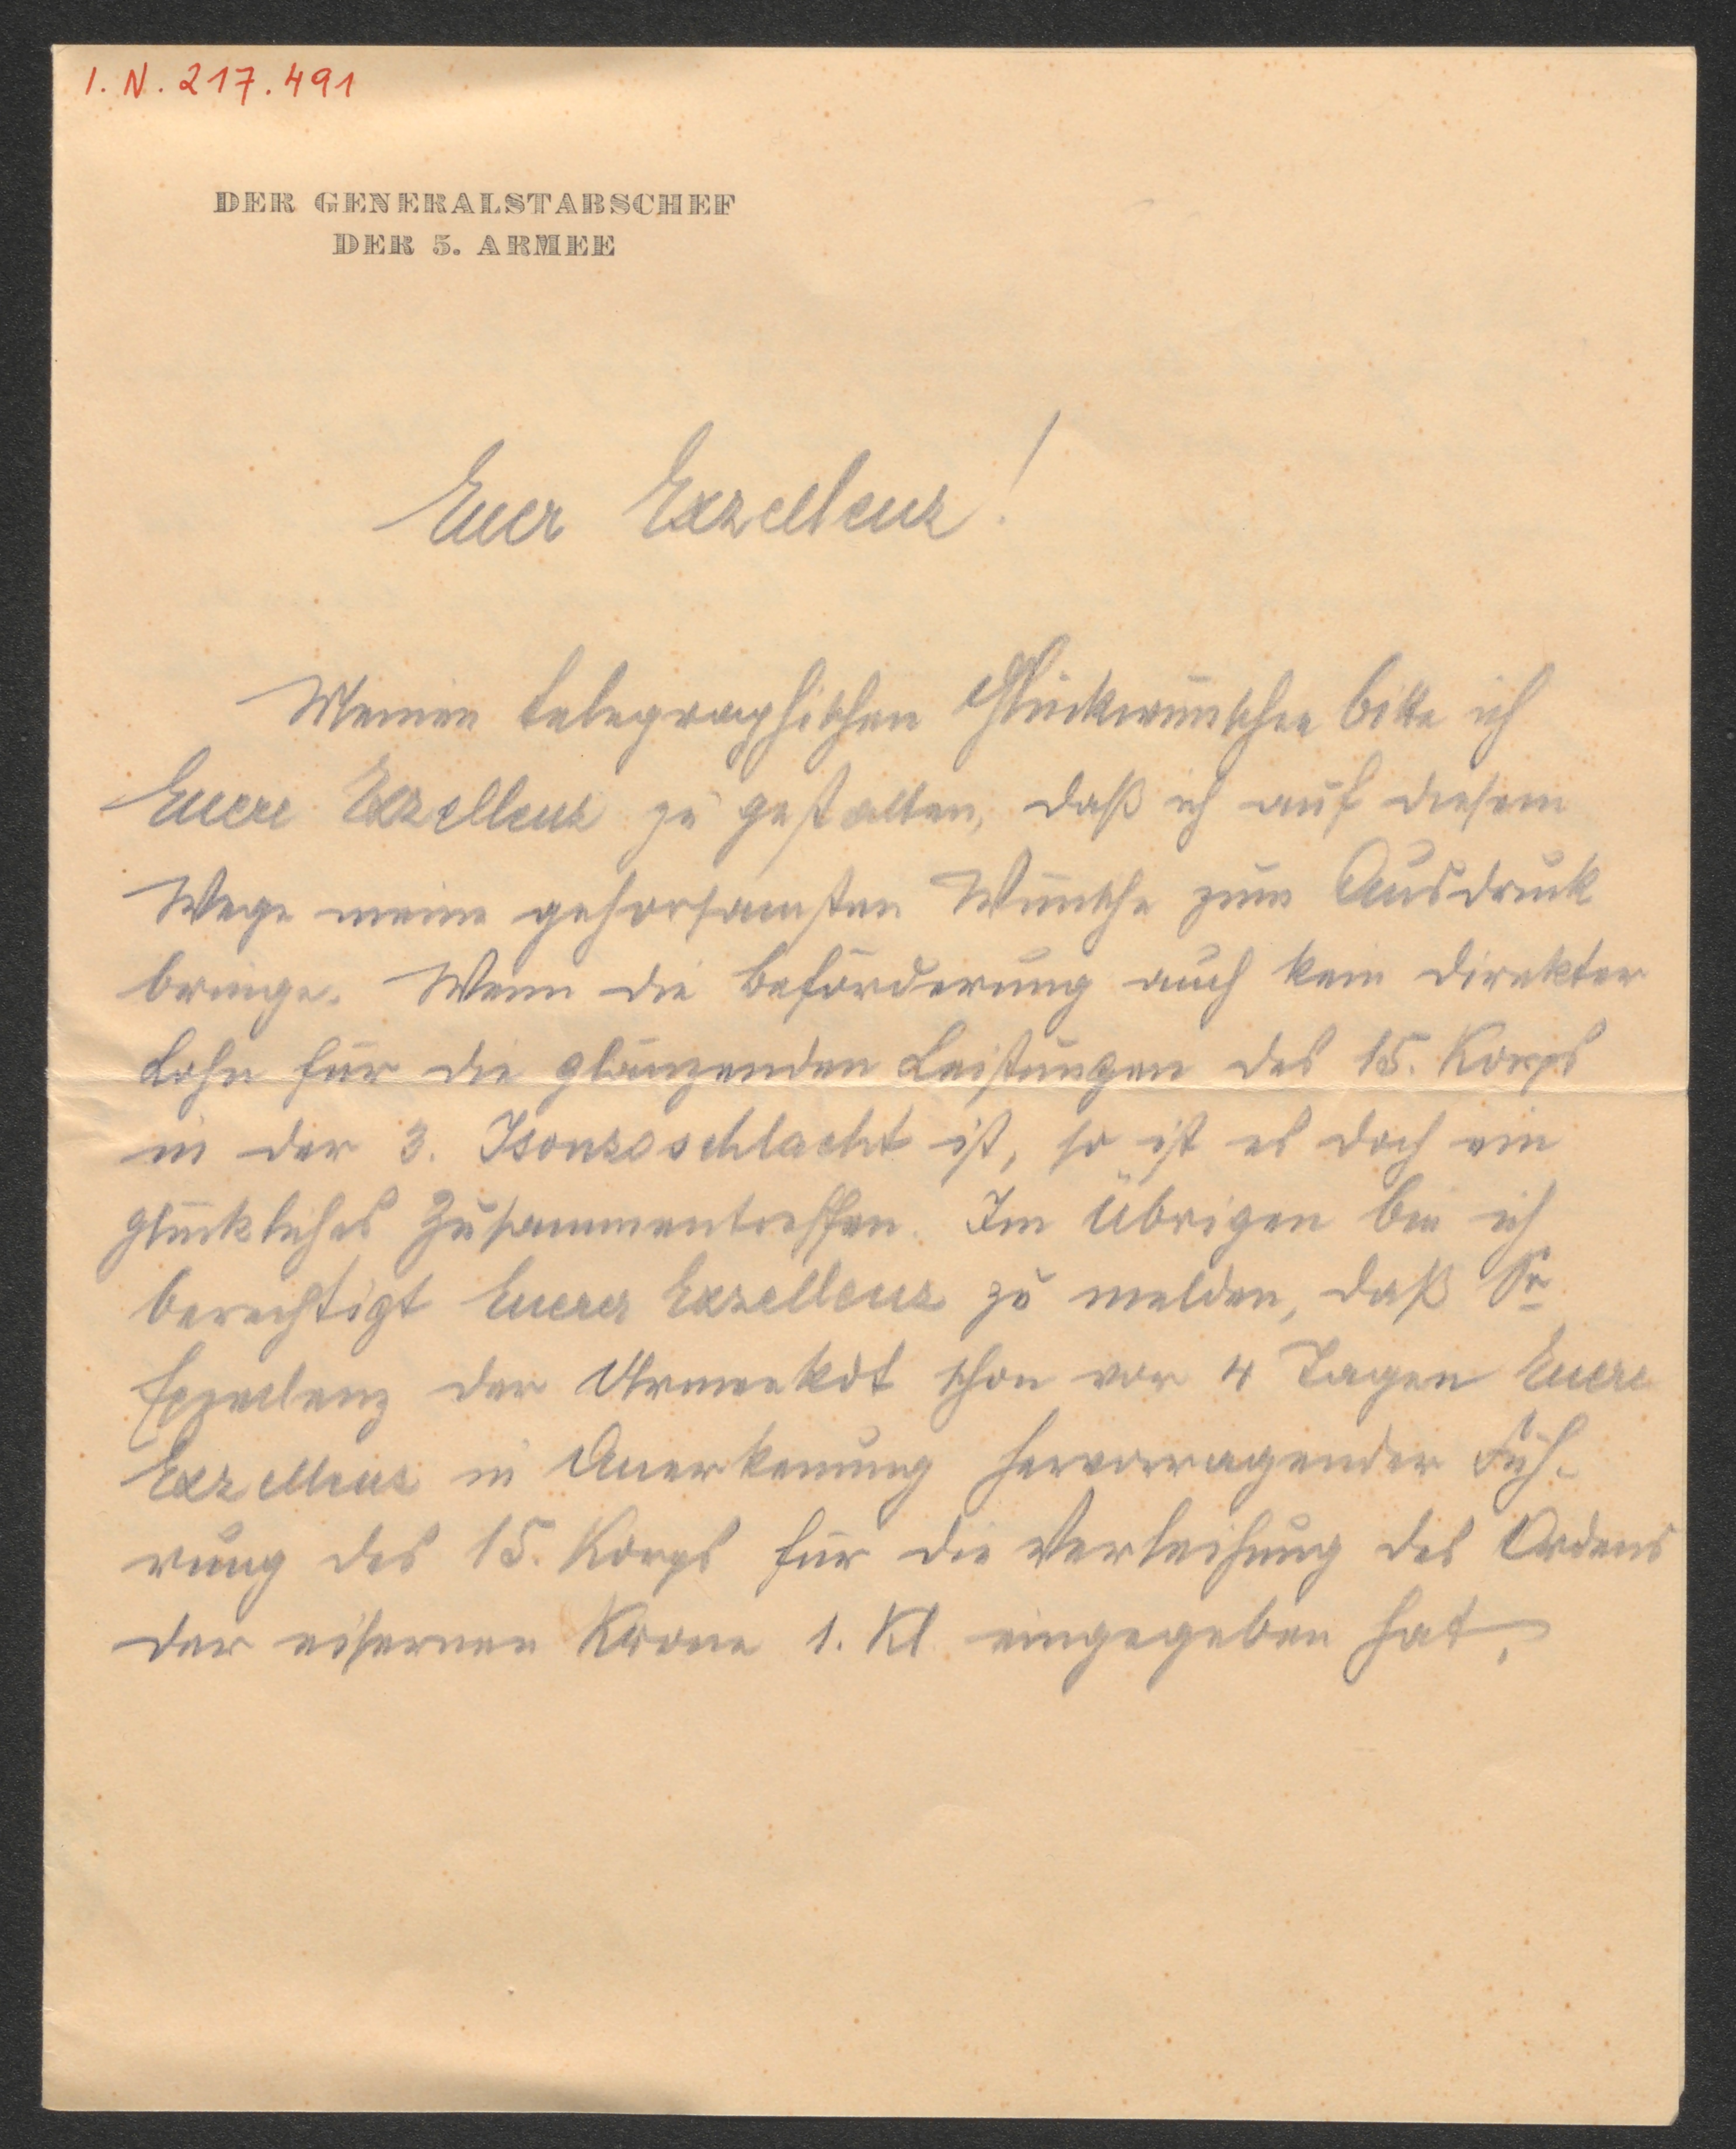 I. N. 217.491
DER GENERALSTABSCHEF
DER 5. ARMEE
Euer Exzellenz!
Meinen telegraphischen Glückwünschen bitte ich
Euere Exzellenz zu gestatten, daß ich auf diesem
Wege meine gehorsamsten Wünsche zum Ausdruck
bringe. Wenn die Beförderung auch kein direkter
Lohn für die glänzenden Leistungen des 15. Korps
in der 3. Isonzoschlacht ist, so ist es doch ein
glückliches Zusammentreffen. Im Übrigen bin ich
berechtigt Euerer Exzellenz zu melden, daß Se
Exzellenz der Armeekdt schon vor 4 Tagen Euere
Exzellenz in Anerkennung hervorragender Füh-
rung des 15. Korps für die Verleihung des Ordens
der eisernen Krone 1. Kl eingegeben hat.